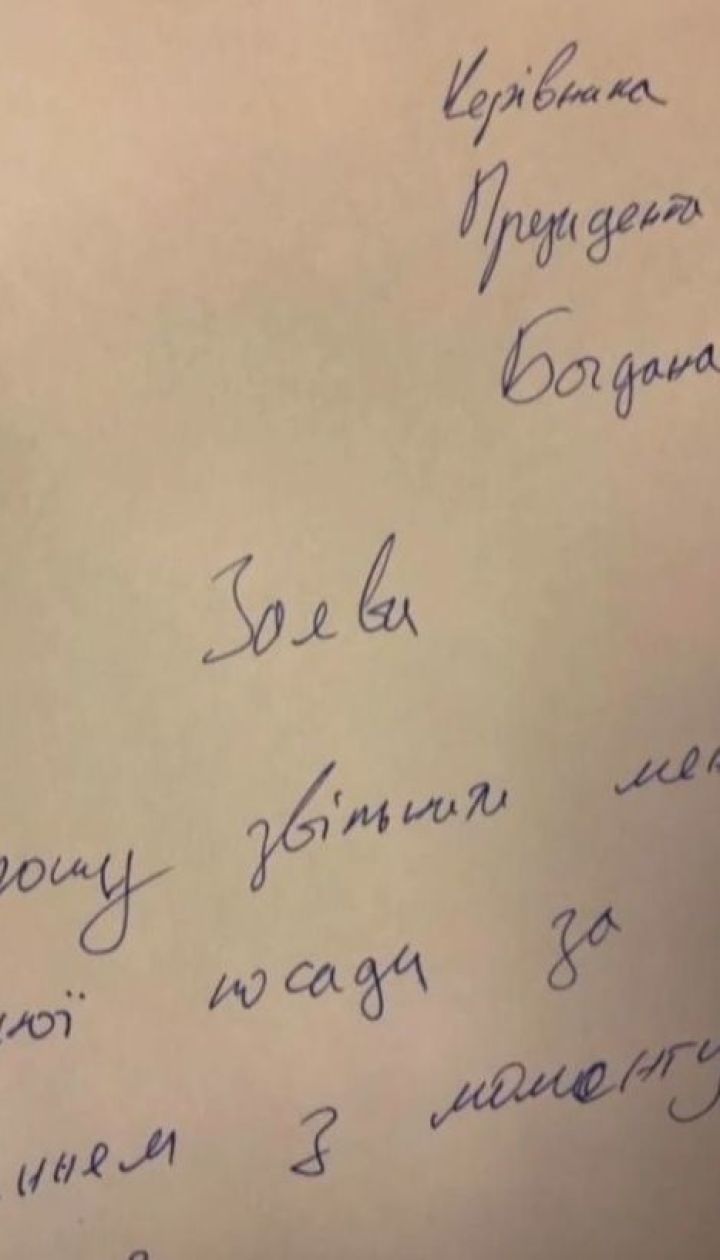 Керівника
Президента
Богдана
Заява
рошу звільнити мен
ної посади за
нням з моменту